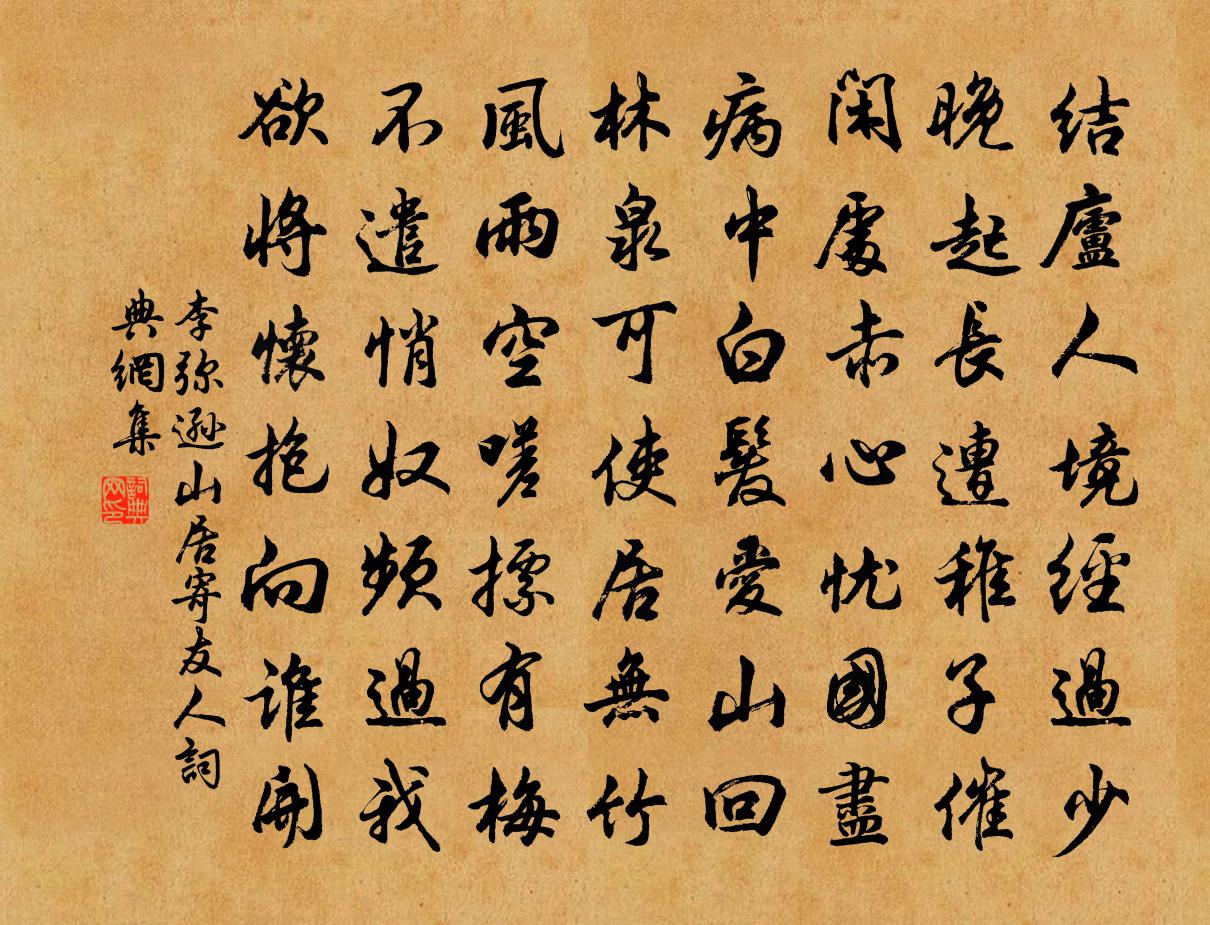 結廬人境經過少
晚起長遭稚子催
閑處赤心忧國盡
病中白髮愛山回
林泉可使居無竹
風雨空嗟摽有梅
不遣悄奴頻過我
欲將懷抱向誰開
李弥遜山居寄友人詞
典網集
詞典網印